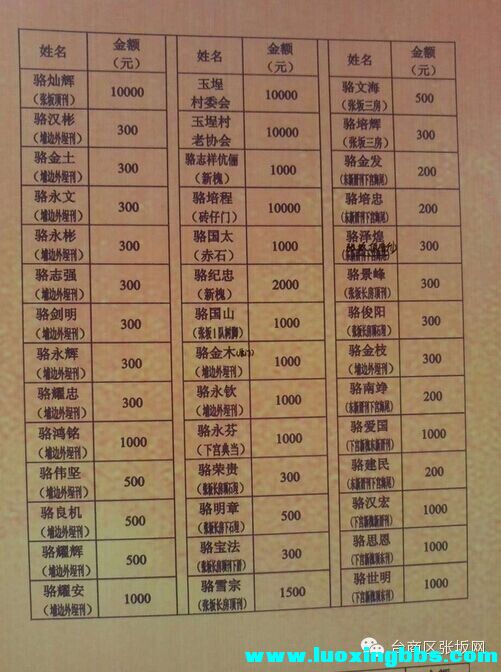 姓名 金额（元） 姓名 金额（元） 姓名 金额（元）
骆灿辉 10000 玉埕村委会 10000 骆文海 500
（张坂顶刊） （张坂三房）
骆汉彬 300 玉埕村老协会 10000 骆培辉 300
（埔边外埕刊） （张坂三房）
骆金土 300 骆志祥伉俪 1000 骆金发 200
（埔边外埕刊） （新槐）
骆永文 300 骆培程 10000 骆培忠 200
（埔边外埕刊） （砖仔门）
骆永彬 300 骆国太 1000 骆泽煌 300
（埔边外埕刊） （赤石）
骆志强 300 骆纪忠 2000 骆景峰 300
（埔边外埕刊） （新槐） （张坂长房顶刊）
骆剑明 300 骆国山 1000 骆俊阳 300
（埔边外埕刊） （张坂1队树脚）
骆永辉 300 骆金木 1000 骆金枝 300
（埔边外埕刊） （埔边外埕刊） （埔边外埕刊）
骆耀忠 300 骆永钦 1000 骆南竫 200
（埔边外埕刊） （埔边外埕刊）
骆鸿铭 1000 骆永芬 1000 骆爱国 1000
（埔边外埕刊） （下宫典当）
骆伟坚 500 骆荣贵 300 骆建民 200
（埔边外埕刊）
骆良机 500 骆明章 500 骆汉宏 1000
（埔边外埕刊）
骆耀辉 500 骆宝法 300 骆思恩 1000
（埔边外埕刊）
骆耀安 1000 骆雪宗 1500 骆世明 1000
（埔边外埕刊） （张坂长房顶刊）
台商区张坂网
www.luoxingbbs.com